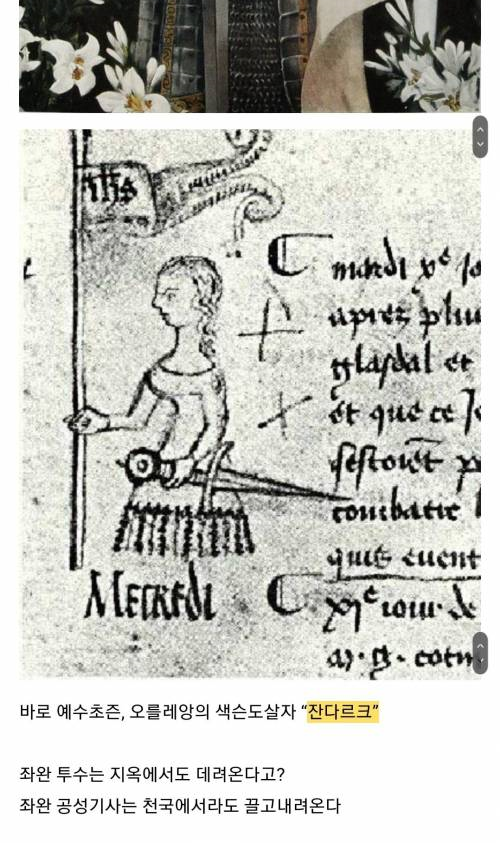 ihs
mardi xᵉ jo
apres plu
glasdal et
et que ce
sestoiēt
combatre
quis euent
Mecredi
xjᵉ iour de
바로 예수초즌, 오를레앙의 색슨도살자 “잔다르크”
좌완 투수는 지옥에서도 데려온다고?
좌완 공성기사는 천국에서라도 끌고내려온다